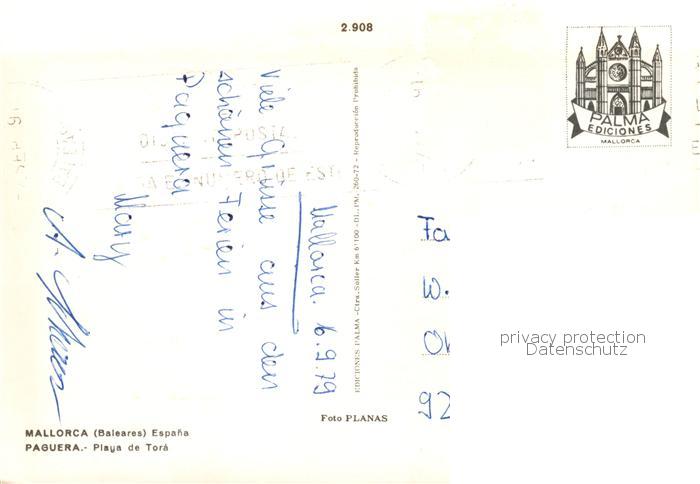 2.908
PALMA
EDICIONES
MALLORCA
Mallorca. 6.9.79
Viele Grüsse aus den
schönen Ferien in
Paguera
Mary
EDICIONES PALMA - Ctra. Sóller Km 6'100 - DL. PM. 260-72 - Reproducción Prohibida
Fa
W.
92
privacy protection
Datenschutz
Foto PLANAS
MALLORCA (Baleares) España
PAGUERA.- Playa de Torá